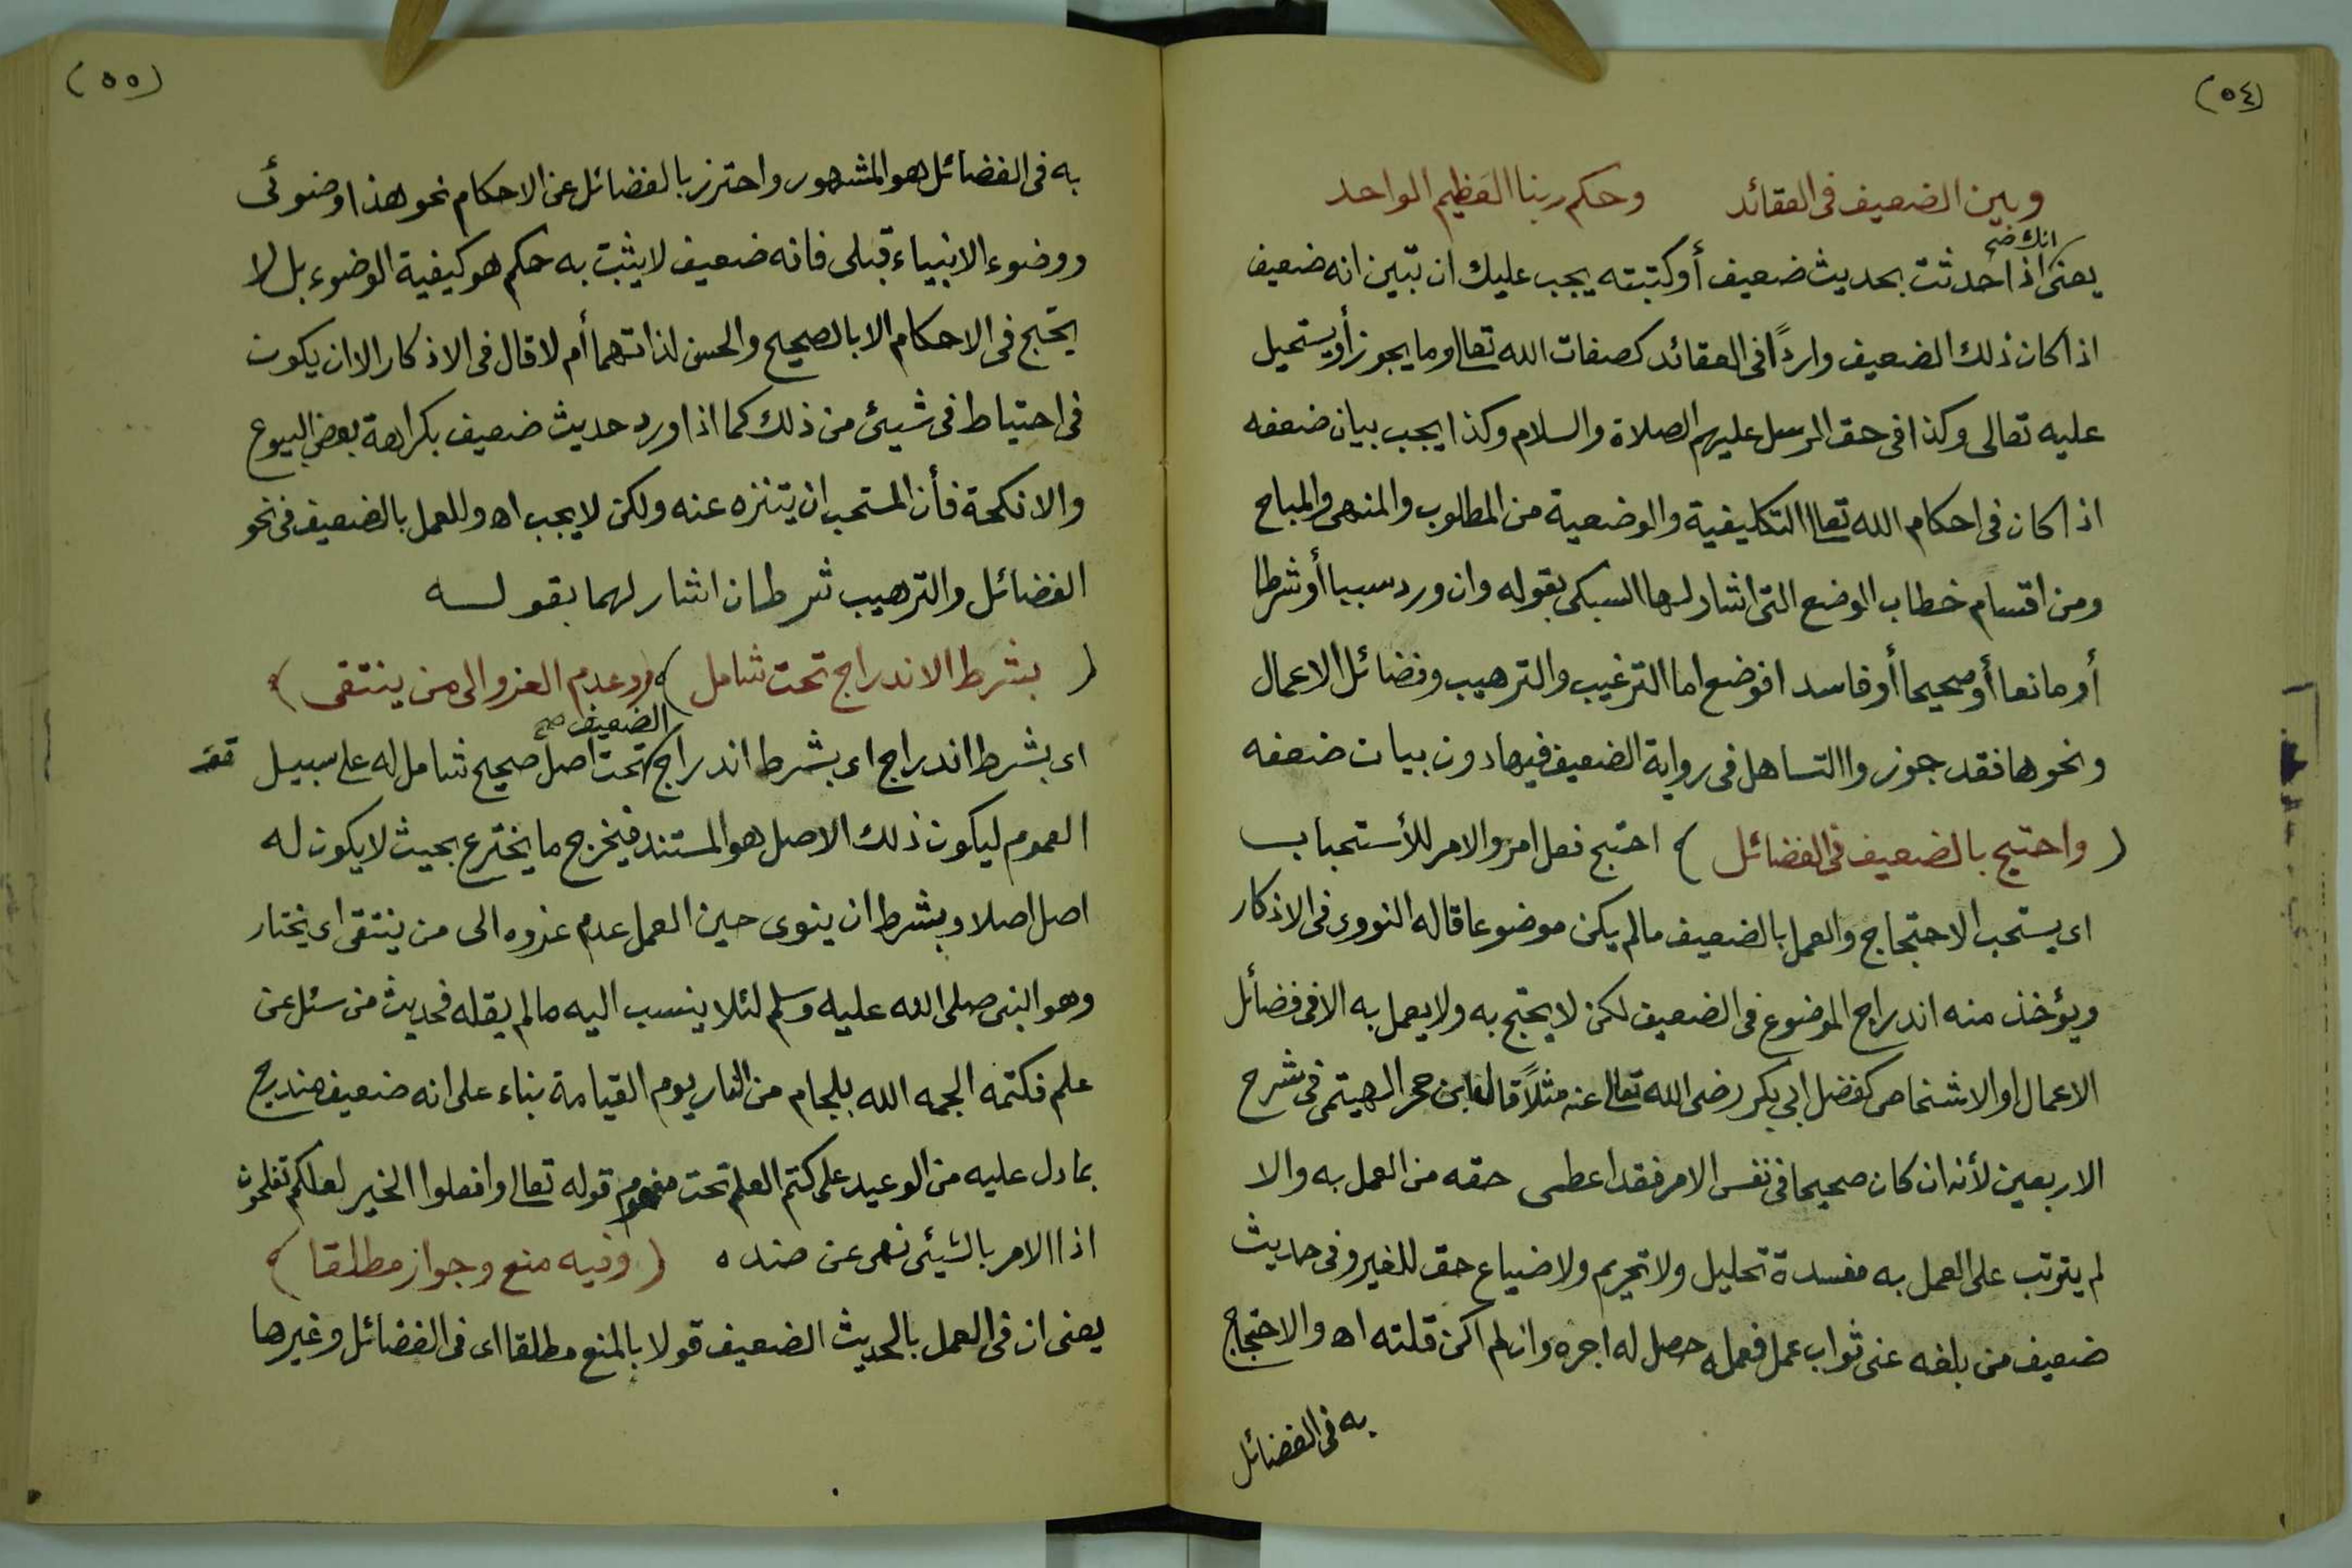 (٥٤)
وبين الضعيف فى العقائد وحكم ربنا العظيم الواحد
انك صح
يعنى اذا حدثت بحديث ضعيف أو كتبته يجب عليك ان تبين انه ضعيف
اذا كان ذلك الضعيف واردًا فى العقائد كصفات الله تعالى وما يجوز أو يستحيل
عليه تعالى وكذا فى حق الرسل عليهم الصلاة والسلام وكذا يجب بيان ضعفه
اذا كان فى احكام الله تعالى التكليفية والوضعية من المطلوب والمنهى والمباح
ومن اقسام خطاب الوضع التى اشار لها السبكى بقوله وان ورد سببا أو شرطا
أو مانعا أو صحيحا أو فاسدا فوضع اما الترغيب والترهيب وفضائل الاعمال
ونحوها فقد جوزوا التساهل فى رواية الضعيف فيها دون بيان ضعفه
(واحتج بالضعيف فى الفضائل) احتج فعل امر والامر للأستحباب
اى يستحب الاحتجاج والعمل بالضعيف مالم يكن موضوعا قاله النووى فى الاذكار
ويؤخذ منه اندراج الموضوع فى الضعيف لكن لا يحتج به ولا يعمل به الا فى فضائل
الاعمال او الاشخاص كفضل ابى بكر رضى الله تعالى عنه مثلاً قال ابن حجر الهيتمى فى شرح
الاربعين لأنه ان كان صحيحا فى نفس الامر فقد اعطى حقه من العمل به والا
لم يترتب على العمل به مفسدة تحليل ولا تحريم ولا ضياع حق للغير وفى حديث
ضعيف من بلغه عنى ثواب عمل فعمله حصل له اجره وان لم اكن قلته اه والاحتجاج
به فى الفضائل
(٥٥)
به فى الفضائل هو المشهور واحترز بالفضائل عن الاحكام نحو هذا وضوئى
ووضوء الانبياء قبلى فانه ضعيف لا يثبت به حكم هو كيفية الوضوء بل لا
يحتج فى الاحكام الا بالصحيح والحسن لذاتهما أم لا قال فى الاذكار الا ان يكون
فى احتياط فى شيئ من ذلك كما اذا ورد حديث ضعيف بكراهة بعض البيوع
والانكحة فأن المستحب ان يتنزه عنه ولكن لا يجب اه وللعمل بالضعيف فى نحو
الفضائل والترهيب شرطان اشار لهما بقولسه
(بشرط الاندراج تحت شامل) (وعدم العزو الى من ينتقى)
الضعيف صح
اى بشرط اندراج اى بشرط اندراج تحت اصل صحيح شامل له على سبيل
العموم ليكون ذلك الاصل هو المستند فيخرج ما يخترع بحيث لا يكون له
اصل اصلا وبشرط ان ينوى حين العمل عدم عزوه الى من ينتقى اى يختار
وهو النبى صلى الله عليه وسلم لئلا ينسب اليه مالم يقله فحديث من سئل عن
علم فكتمه الجمه الله بلجام من النار يوم القيامة بناء على انه ضعيف مندرج
بما دل عليه من الوعيد على كتم العلم تحت مفهوم قوله تعالى وافعلوا الخير لعلكم تفلحون
اذا الامر بالشيئ نهى عن ضده (وفيه منع وجواز مطلقا)
يعنى ان فى العمل بالحديث الضعيف قولا بالمنع مطلقا اى فى الفضائل وغيرها